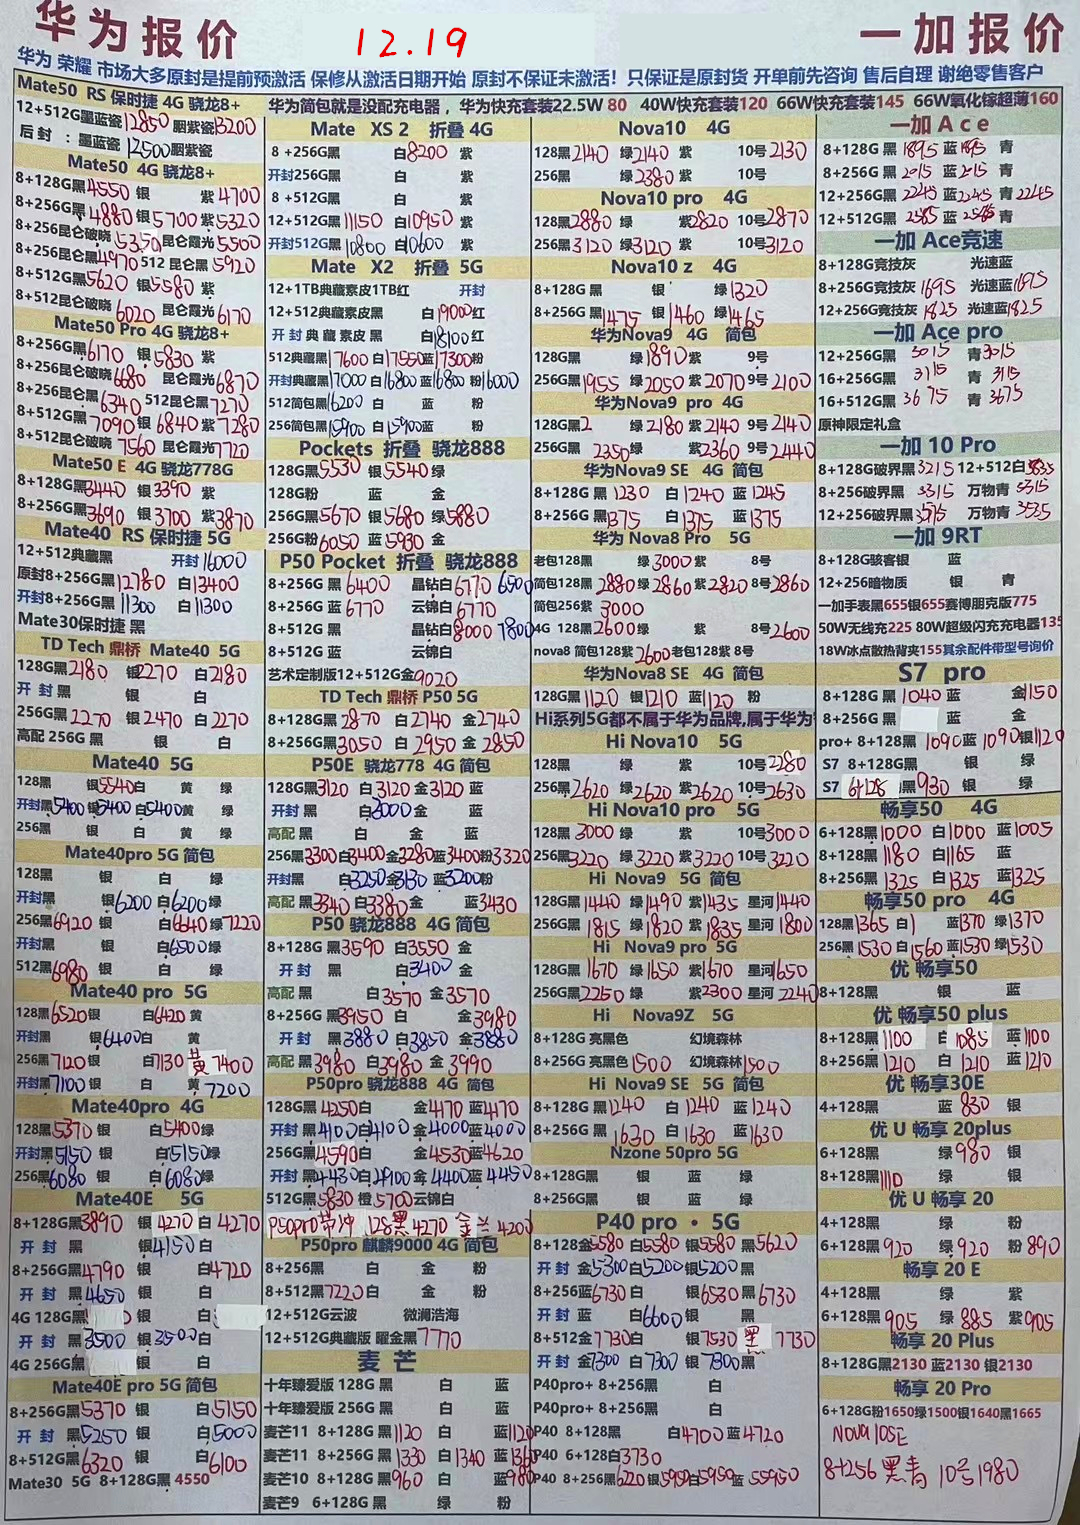 华为报价
12.19
一加报价
华为 荣耀 市场大多原封是提前预激活 保修从激活日期开始 原封不保证未激活！只保证是原封货 开单前先咨询 售后自理 谢绝零售客户
Mate50 RS 保时捷 4G 骁龙8+
12+512G墨蓝瓷12850 胭紫瓷13200
后封 ：墨蓝瓷 12500胭紫瓷
Mate50 4G 骁龙8+
8+128G黑4550 银 紫4700
8+256G黑4880 银5700 紫5320
8+256昆仑破晓5350昆仑霞光5500
8+256昆仑黑4970 512 昆仑黑5920
8+512G黑5620 银5580 紫
8+512昆仑破晓6020 昆仑霞光6170
Mate50 Pro 4G 骁龙8+
8+256G黑6170 银5830 紫
8+256昆仑破晓6680 昆仑霞光6870
8+256昆仑黑6340 512昆仑黑7270
8+512G黑7090 银6840 紫7280
8+512昆仑破晓7560 昆仑霞光7720
Mate50 E 4G 骁龙778G
8+128G黑3440 银3390 紫
8+256G黑3690 银3700 紫3870
Mate40 RS 保时捷 5G
12+512典藏黑 开封16000
原封8+256G黑12780 白13400
开封8+256G黑11300 白11300
Mate30保时捷 黑
TD Tech 鼎桥 Mate40 5G
128G黑2180 银2270 白2180
开 封 黑 银 白
256G黑2270 银2470 白2270
高配 256G 黑 银 白
Mate40 5G
128黑 银5540白 黄 绿
开封黑5400银5400白5400黄 绿
256黑 银 白 黄 绿
Mate40pro 5G 简包
128黑 银 白 绿
开封黑 银6200白6200绿
256黑6920 银 白6640绿7220
开封黑 银 白6500绿
512黑6980 银 白 绿
Mate40 pro 5G
128黑6520银 白6420 黄
开封黑 银6400白 黄
256黑7120银 白7130 黄7400
开封黑7100 银 白 黄7200
Mate40pro 4G
128黑5370 银 白5400绿
开封黑5150 银 白5150绿
256黑6080 银 白6080绿
Mate40E 5G
8+128G黑3890 银4270 白4270
开 封 黑 银4150 白
8+256G黑4790 银 白4720
开 封 黑4650 银 白
4G 128G黑 银 白
开 封 黑3500 银3500白
4G 256G黑 银 白
Mate40E pro 5G 简包
8+256G黑5370 银 白5150
开 封 黑5250 银 白5000
8+512G黑6320 银 白6100
Mate30 5G 8+128G黑 4550
华为简包就是没配充电器， 华为快充套装22.5W 80 40W快充套装120 66W快充套装145 66W氧化镓超薄160
Mate XS 2 折叠 4G
8 +256G黑 白8200 紫
开封256G黑 白 紫
8 +512G黑 白 紫
12+512G黑11150 白10950 紫
开封512G黑10800 白10600 紫
Mate X2 折叠 5G
12+1TB典藏素皮1TB红 开封
12+512典藏素皮黑 白19000红
开 封 典 藏 素皮 黑 白18100红
512典藏黑17600 白17550蓝17300粉
开封典藏黑17000 白16800 蓝16800 粉16000
512简包黑16200 白 蓝 粉
256简包黑15900 白15900蓝 粉
Pockets 折叠 骁龙888
128G黑5530 银5540绿
128G粉 蓝 金
256G黑5670 银5680 绿5880
256G粉6050 蓝5930 金
P50 Pocket 折叠 骁龙888
8+256G 黑6400 晶钻白6770 6500
8+256G 蓝6770 云锦白6770
8+512G 黑 晶钻白8000 7800
8+512G 蓝 云锦白
艺术定制版12+512G金9020
TD Tech 鼎桥 P50 5G
8+128G黑2870 白2740 金2740
8+256G黑3050 白2950 金2850
P50E 骁龙778 4G 简包
128G黑3120 白3120 金3120 蓝
开封 黑 白3000 金 蓝
高配 黑 白 金 蓝
256黑3300白3400金3280蓝3400粉3320
开封黑 白3250金3130 蓝3200粉
高配 黑3340白3380金 蓝3430
P50 骁龙888 4G 简包
8+128G 黑3590 白3550 金
开 封 黑 白3400 金
高配 黑 白3570 金3570
8+256G 黑3950 白 金3980
开 封 黑3880 白3850 金3880
高配 黑3980 白3980 金3990
P50pro 骁龙888 4G 简包
128G黑4250白 金4170 蓝4170
开封 黑4100白4100 金4000蓝4000
256G黑4590白 金4530蓝4620
开封 黑4430白4900 金4400蓝4450
512G黑5830 橙5700云锦白
P50pro带冲 128黑4270 金兰4200
P50pro 麒麟9000 4G 简包
8+256 黑 白 金 粉
8+512黑7220白 金 粉
12+512G云波 微澜浩海
12+512G典藏版 曜金黑7770
麦芒
十年臻爱版 128G 黑 白 蓝
十年臻爱版 256G 黑 白 蓝
麦芒11 8+128G 黑1120 白 蓝1120
麦芒11 8+256G 黑1330 白1340 蓝1360
麦芒10 8+128G 黑960 白 蓝980
麦芒9 6+128G 黑 绿 粉
Nova10 4G
128黑2140 绿2140 紫 10号2130
256黑 绿2380 紫 10号
Nova10 pro 4G
128黑2880 绿 紫2820 10号2870
256黑3120 绿3120 紫 10号3120
Nova10 z 4G
8+128G 黑 银 绿1320
8+256G 黑1475 银1460 绿1465
华为Nova9 4G 简包
128G黑 绿1890紫 9号
256G黑1955 绿2050 紫2070 9号2100
华为Nova9 pro 4G
128G黑2 绿2180 紫2140 9号2140
256G黑2350绿 紫2360 9号2440
华为Nova9 SE 4G 简包
8+128G 黑1230 白1240 蓝1245
8+256G 黑1375 白1375 蓝1375
华为 Nova8 Pro 5G
老包128黑 绿3000紫 8号
简包128黑2880绿2860 紫2820 8号2860
简包256紫3000
4G 128黑2600绿 紫 8号2600
nova8 简包128紫2600老包128紫 8号
华为Nova8 SE 4G 简包
128G黑1120 银1210蓝1120 粉
Hi系列5G都不属于华为品牌,属于华为
Hi Nova10 5G
128黑 绿 紫 10号2280
256黑2620 绿2620 紫2620 10号2630
Hi Nova10 pro 5G
128黑3000 绿 紫 10号3000
256黑3220 绿3220 紫3220 10号3220
Hi Nova9 5G 简包
128G黑1440 绿1490 紫1435 星河1440
256G黑1815 绿1820 紫1835 星河1800
Hi Nova9 pro 5G
128G黑1670 绿1650 紫1670 星河1650
256G黑2250 绿 紫2300 星河2240
Hi Nova9Z 5G
8+128G 亮黑色 幻境森林
8+256G 亮黑色1500 幻境森林1500
Hi Nova9 SE 5G 简包
8+128G 黑1240 白1240 蓝1240
8+256G 黑1630 白1630 蓝1630
Nzone 50pro 5G
8+128G黑 银 蓝 绿
8+256G黑 银 蓝 绿
P40 pro · 5G
8+128金5580 白5580 银5580 黑5620
开 封 金5300白5200银5200黑
8+256蓝6730白 银6530黑6730
开 封 蓝 白6600银 黑
8+512金7730白 银7530 黑7730
开 封 金7300 白7300 银7300黑
P40pro+ 8+256黑 白
P40pro+ 8+256黑 白
P40 8+128黑 白4700蓝4720
P40 6+128白3730
P40 8+256黑6220银5950白5950蓝55950
一加 A c e
8+128G 黑1895 蓝1895 青
8+256G 黑2015 蓝2015 青
12+256G黑2245 蓝2245 青2245
12+512G黑2585 蓝2585 青
一加 Ace竞速
8+128G竞技灰 光速蓝
8+256G竞技灰1695 光速蓝1695
12+256G竞技灰1825 光速蓝1825
一加 Ace pro
12+256G黑3015 青3015
16+256G黑3115 青3115
16+512G黑3675 青3675
原神限定礼盒
一加 10 Pro
8+128G破界黑3215 12+512白3835
8+256破界黑3315 万物青3315
12+256破界黑3515 万物青3535
一加 9RT
8+128G骇客银 蓝
12+256暗物质 银 青
一加手表黑655银655赛博朋克版775
50W无线充225 80W超级闪充充电器135
18W冰点散热背夹155其余配件带型号询价
S7 pro
8+128G 黑1040 蓝 金1150
8+256G 黑 蓝 金
pro+ 8+128黑1090蓝1090银1120
S7 8+128G黑 银 绿
S7 6+128 黑930 银 绿
畅享50 4G
6+128黑1000 白1000 蓝1005
8+128黑1180 白1165 蓝
8+256黑1325 白1325 蓝1325
畅享50 pro 4G
128黑1365 白1 蓝1370 绿1370
256黑1530 白1560 蓝1530 绿1530
优 畅享50
8+128G黑 银 蓝
优 畅享50 plus
8+128黑1100 白1085 蓝1100
8+256黑1210 白1210 蓝1210
优 畅享30E
4+128黑 蓝830 银
优 U 畅享 20plus
6+128黑 绿980 银
8+128黑1110 绿 银
优 U 畅享 20
4+128黑 绿 粉
6+128黑920 绿920 粉890
畅享 20 E
4+128黑 绿 紫
6+128黑905 绿885 紫905
畅享 20 Plus
8+128G黑2130 蓝2130 银2130
畅享 20 Pro
6+128G粉1650绿1500银1640黑1665
NOVA10SE
8+256 黑青 10号1980